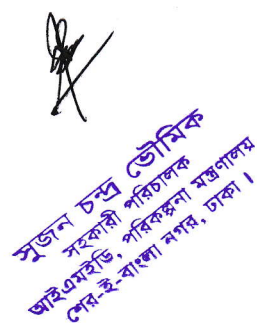 সুজন চন্দ্র ভৌমিক
সহকারী পরিচালক
আইএমইডি, পরিকল্পনা মন্ত্রণালয়
শের-ই-বাংলা নগর, ঢাকা।